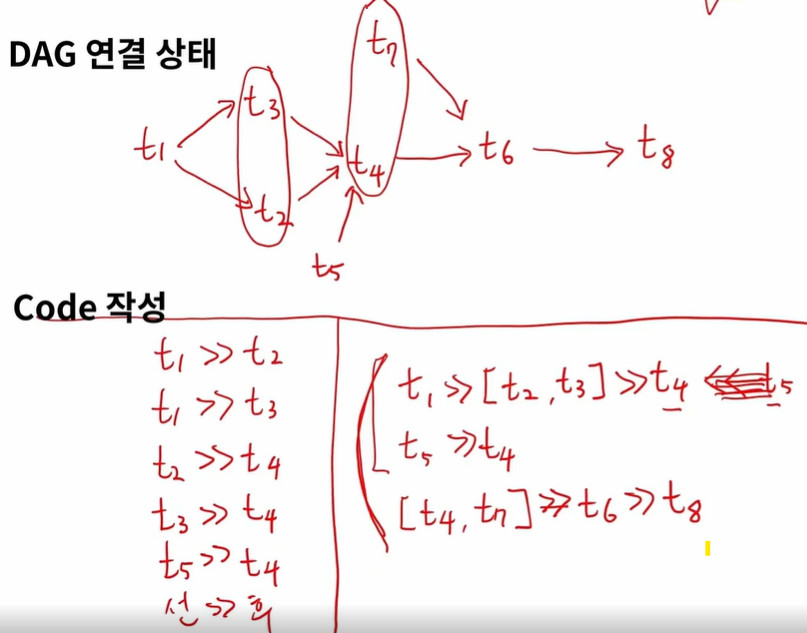 DAG 연결 상태
t7
t3
t1
t4
t6
t8
t2
t5
Code 작성
t1 >> t2
t1 >> t3
t2 >> t4
t3 >> t4
t5 >> t4
선 >> 후
t1 >> [t2, t3] >> t4 << t5
t5 >> t4
[t4, t7] >> t6 >> t8